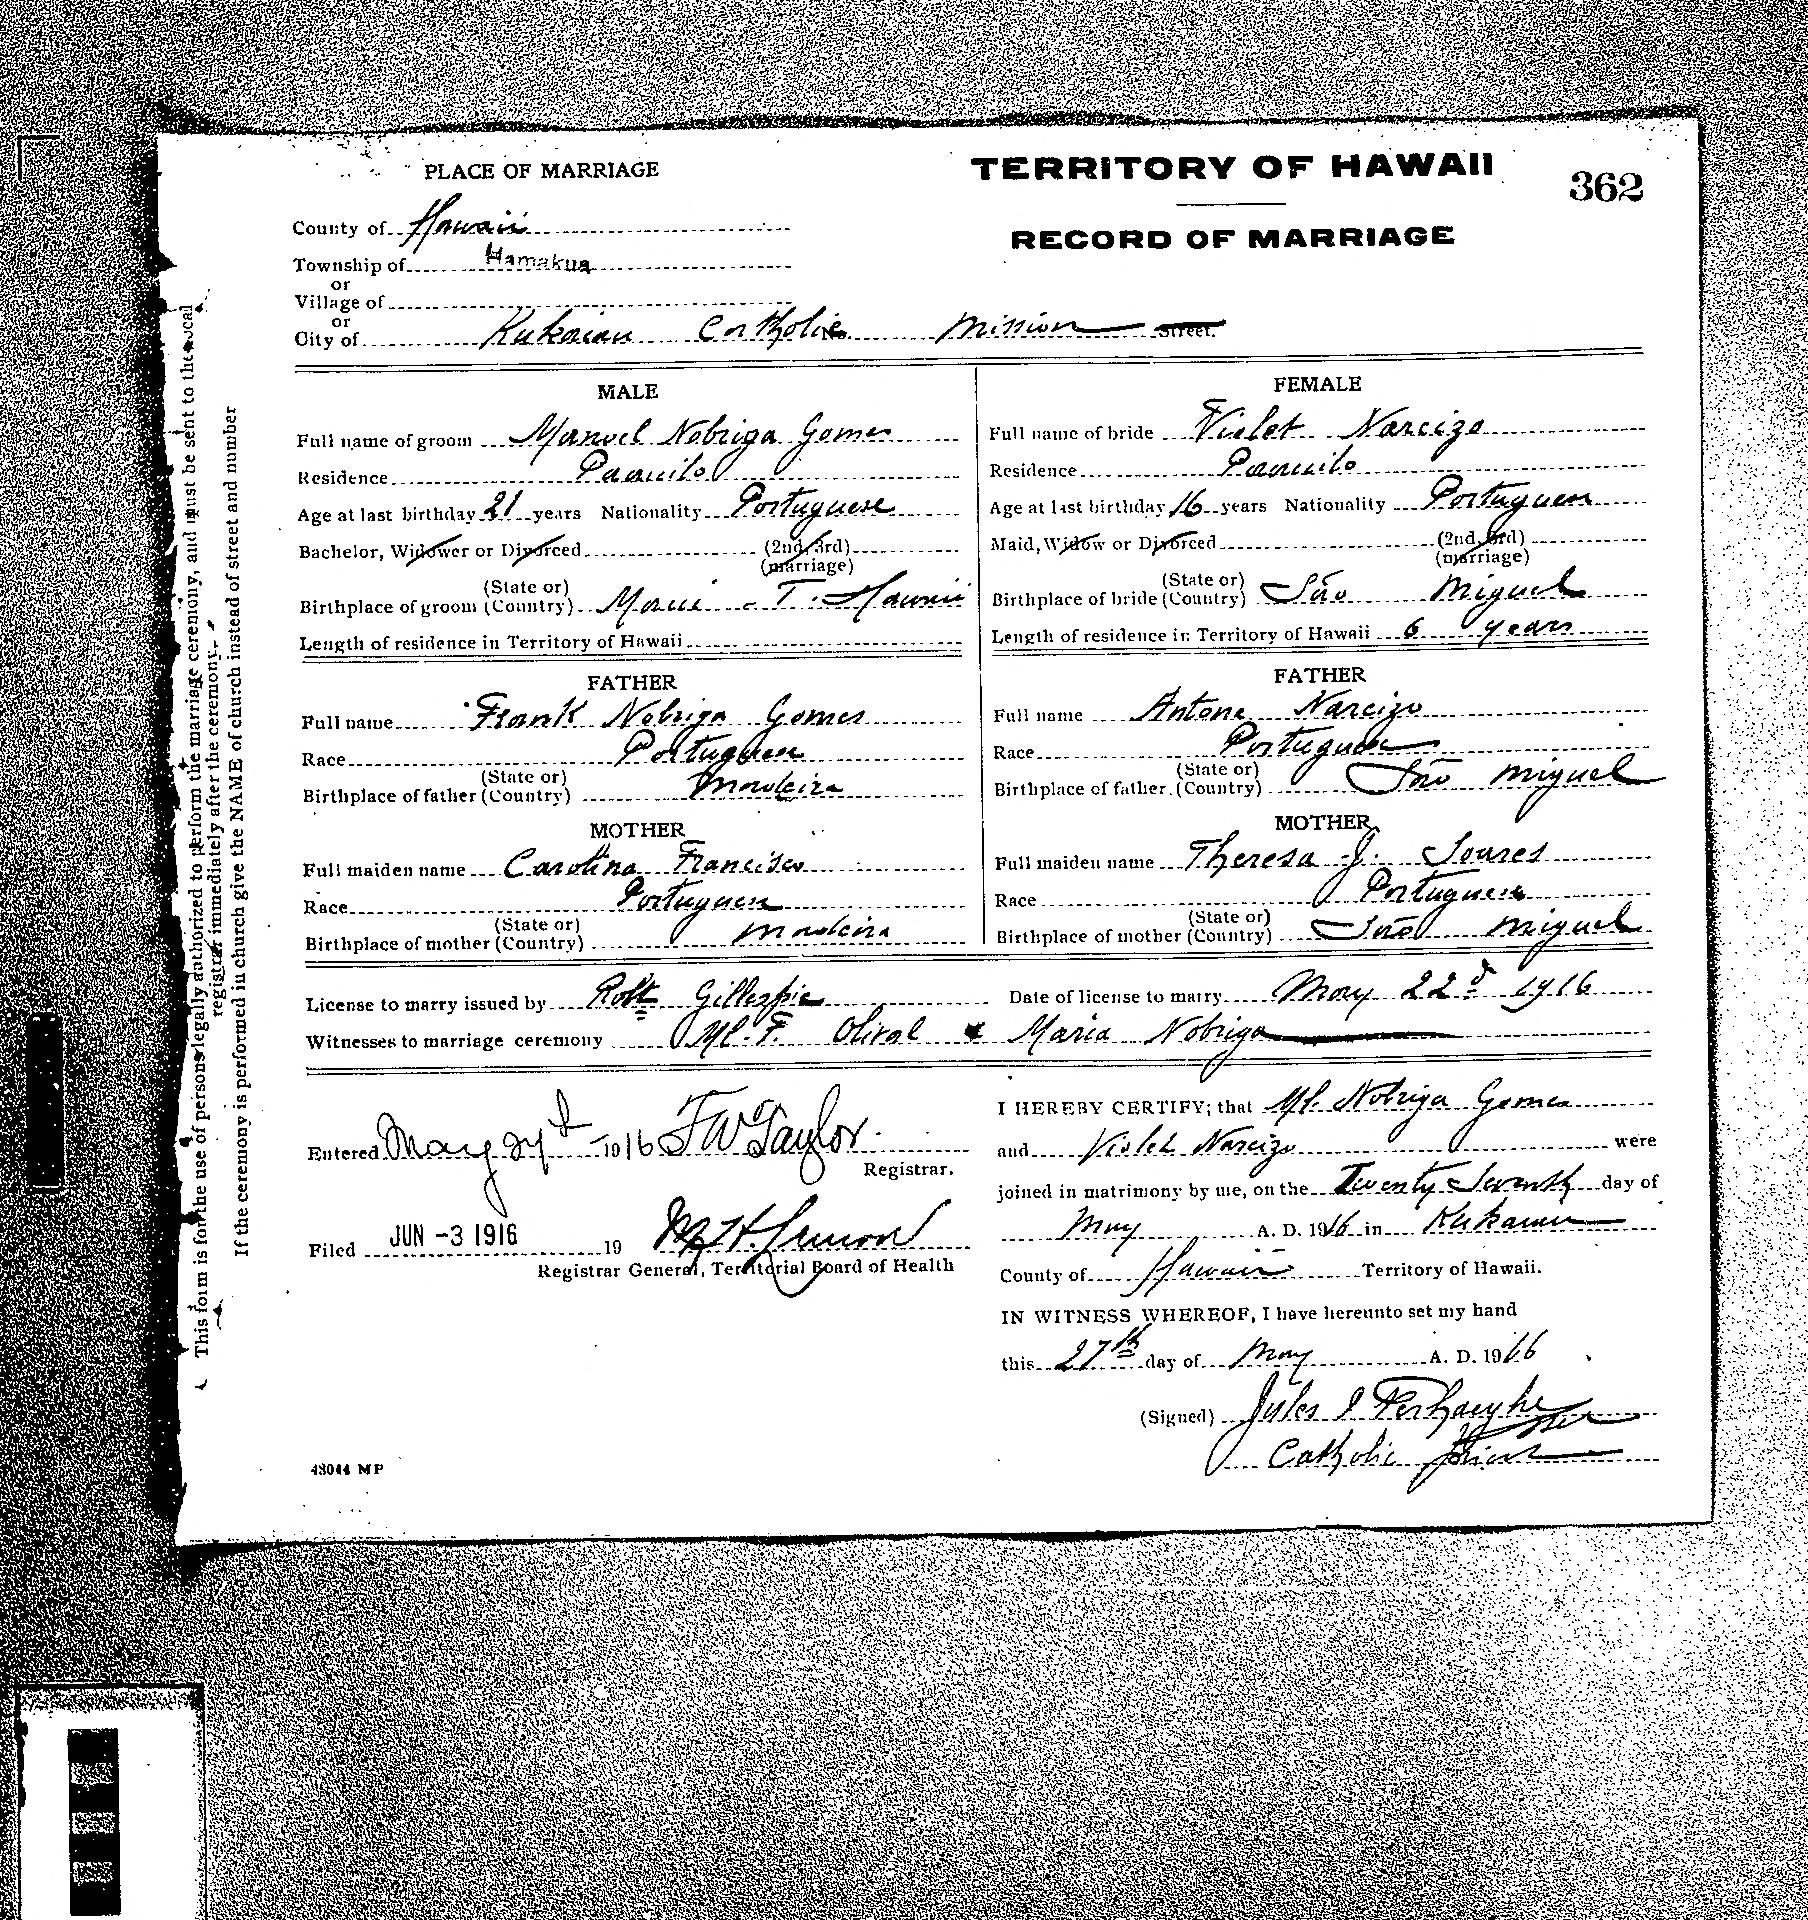 PLACE OF MARRIAGE
TERRITORY OF HAWAII
362
County of Hawaii
RECORD OF MARRIAGE
Township of Hamakua
or
Village of
or
City of Kukaiau Catholic Mission Street.
MALE
Full name of groom Manoel Nobriga Gomes
Residence Paauilo
Age at last birthday 21 years Nationality Portuguese
Bachelor, Widower or Divorced (2nd, 3rd) (marriage)
Birthplace of groom (State or) (Country) Maui - T. Hawaii
Length of residence in Territory of Hawaii
FATHER
Full name Frank Nobriga Gomes
Race Portuguese
Birthplace of father (State or) (Country) Madeira
MOTHER
Full maiden name Carolina Francisco
Race Portuguese
Birthplace of mother (State or) (Country) Madeira
FEMALE
Full name of bride Violet Narcizo
Residence Paauilo
Age at last birthday 16 years Nationality Portuguese
Maid, Widow or Divorced (2nd, 3rd) (marriage)
Birthplace of bride (State or) (Country) São Miguel
Length of residence in Territory of Hawaii 6 years
FATHER
Full name Antone Narcizo
Race Portuguese
Birthplace of father (State or) (Country) São Miguel
MOTHER
Full maiden name Theresa J. Soares
Race Portuguese
Birthplace of mother (State or) (Country) São Miguel
License to marry issued by Robt Gillespie Date of license to marry May 22d 1916
Witnesses to marriage ceremony Ml. F. Olival & Maria Nobriga
Entered May 27th 1916 F W Taylor
Registrar.
Filed JUN -3 1916 19
Registrar General, Territorial Board of Health
I HEREBY CERTIFY; that Ml. Nobriga Gomes
and Violet Narcizo were
joined in matrimony by me, on the Twenty Seventh day of
May A. D. 1916 in Kukaiau
County of Hawaii Territory of Hawaii.
IN WITNESS WHEREOF, I have hereunto set my hand
this 27th day of May A. D. 1916
(Signed) Jules
Catholic Priest
43044 MP
This form is for the use of persons legally authorized to perform the marriage ceremony, and must be sent to the local
registrar immediately after the ceremony.
If the ceremony is performed in church give the NAME of church instead of street and number